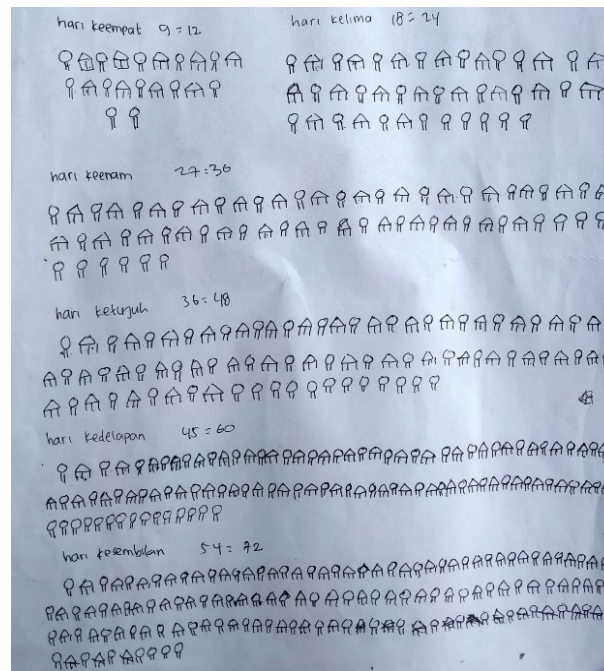 hari keempat 9 = 12
hari kelima 18 = 24
hari keenam 27 = 36
hari ketujuh 36 = 48
hari kedelapan 45 = 60
hari kesembilan 54 = 72